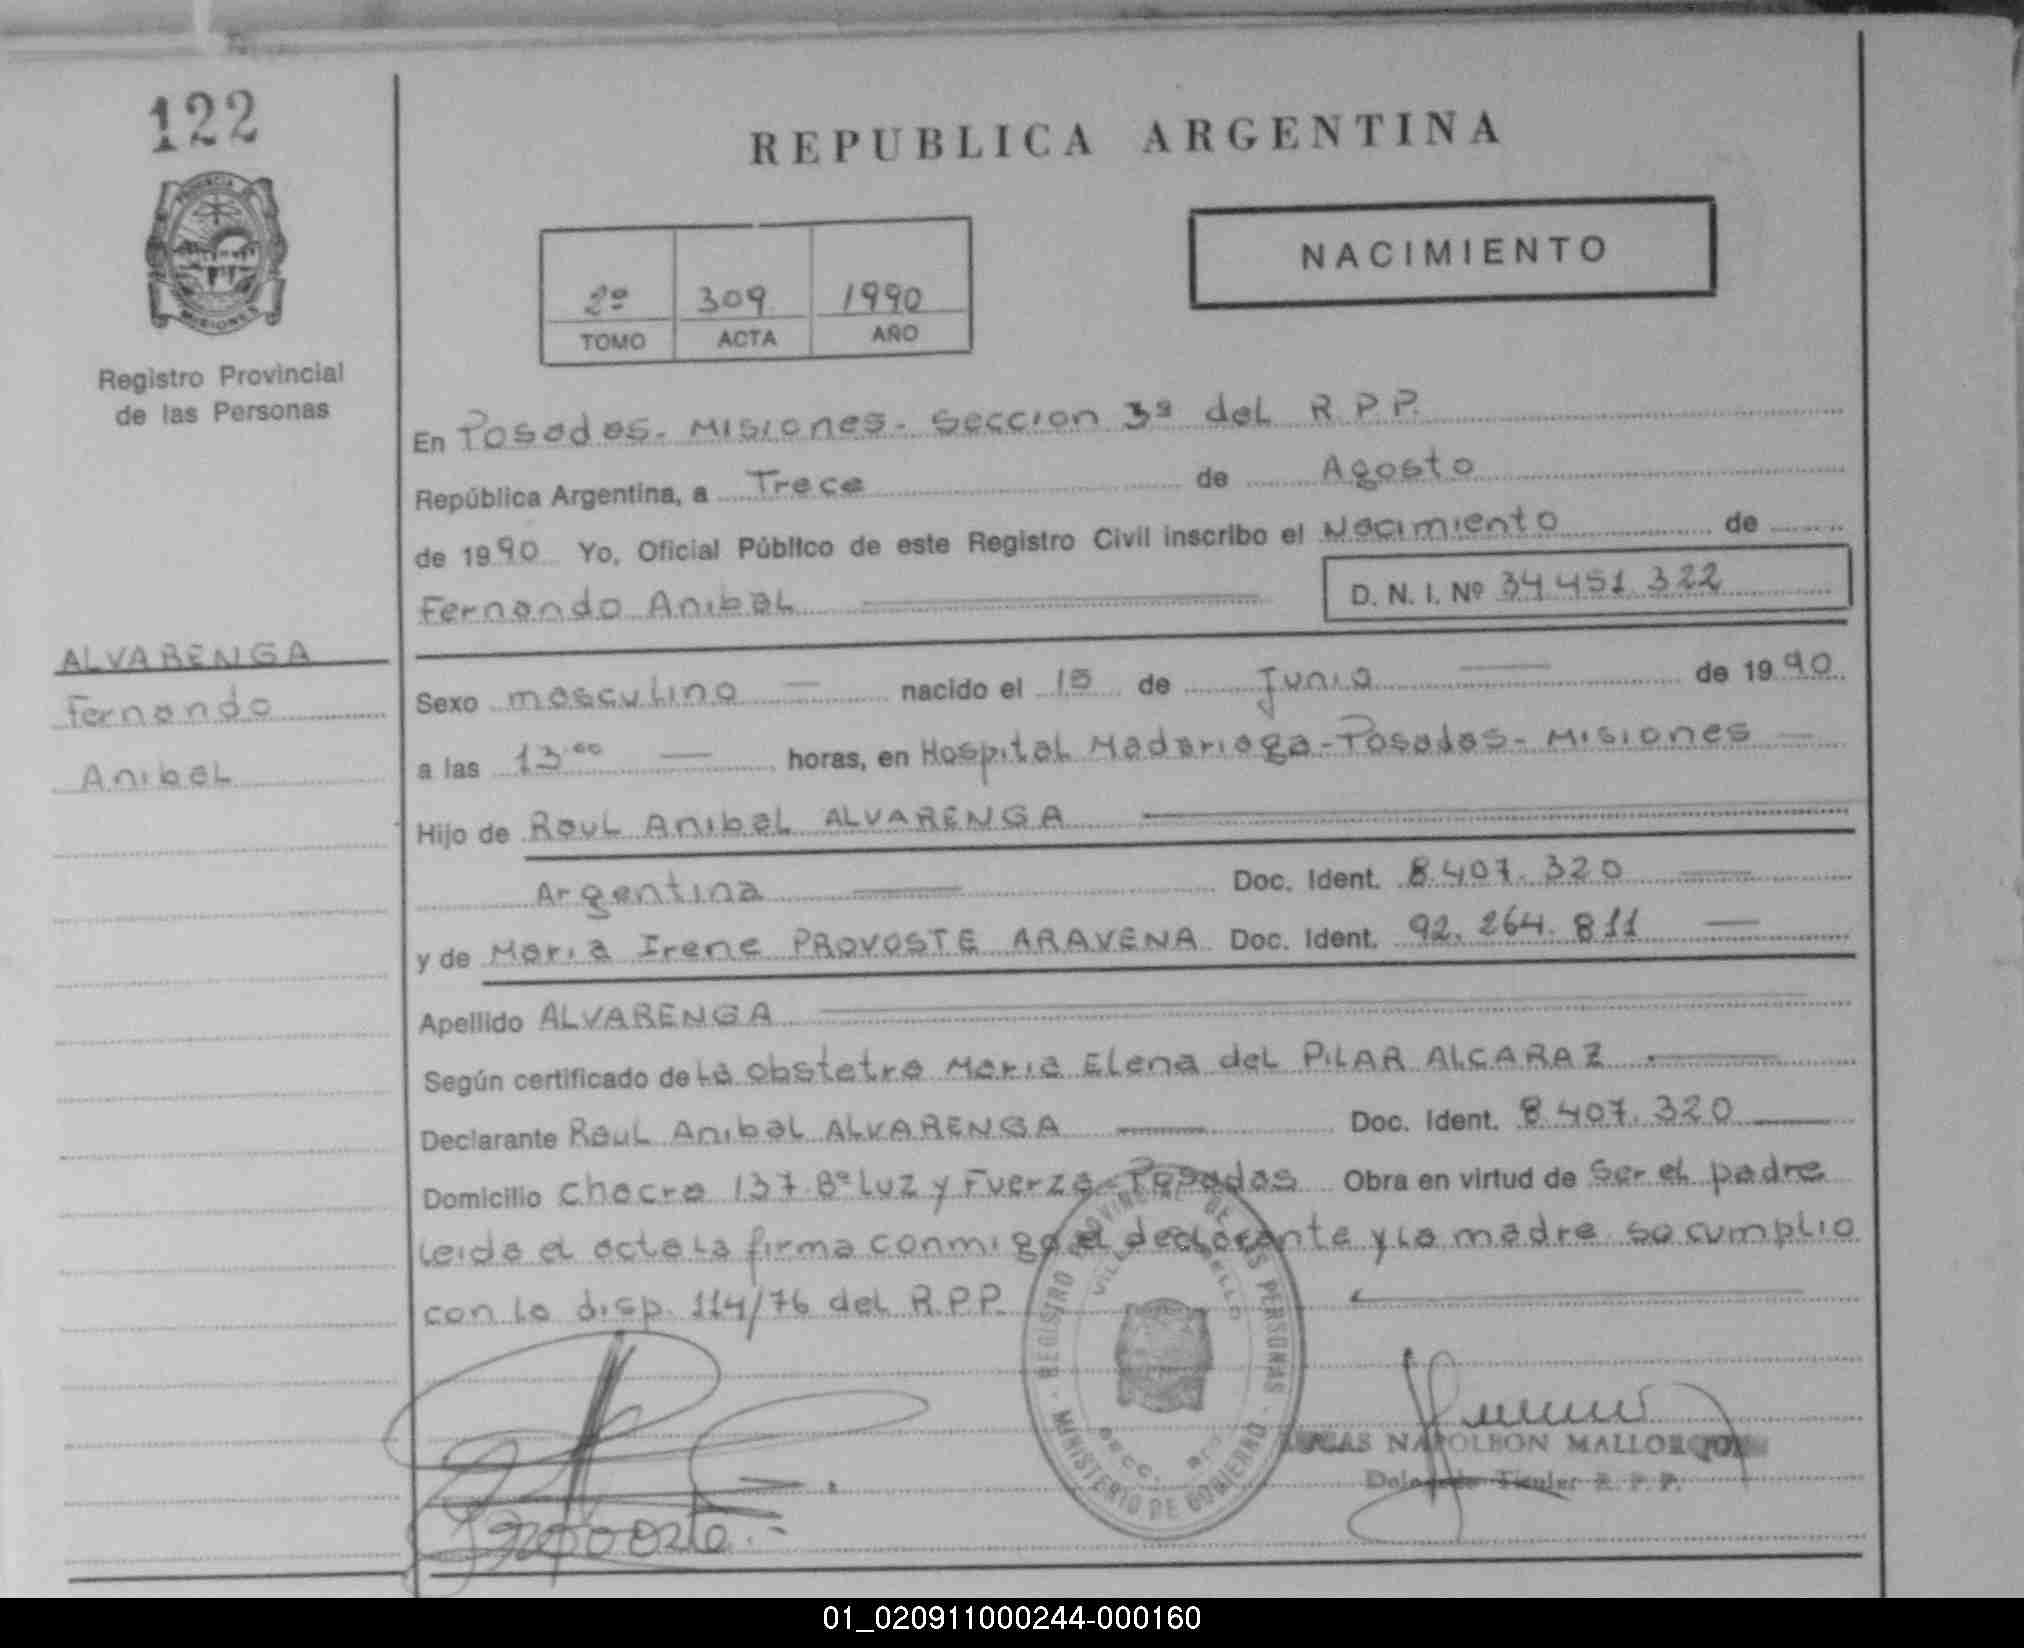 122
PROVINCIA
MISIONES
Registro Provincial
de las Personas
REPUBLICA ARGENTINA
NACIMIENTO
2º 309 1990
TOMO ACTA AÑO
En Posadas - Misiones - Seccion 3ª del R.P.P.
República Argentina, a Trece de Agosto
de 1990 Yo, Oficial Público de este Registro Civil inscribo el Nacimiento de
Fernando Anibal D. N. I. Nº 34.451.322
ALVARENGA
Fernando
Anibal
Sexo masculino nacido el 15 de Junio de 1990
a las 13.00 horas, en Hospital Madariaga - Posadas - Misiones
Hijo de Raul Anibal ALVARENGA
Argentina Doc. Ident. 8.407.320
y de Maria Irene PROVOSTE ARAVENA Doc. Ident. 92.264.811
Apellido ALVARENGA
Según certificado de La obstetra Maria Elena del PILAR ALCARAZ
Declarante Raul Anibal ALVARENGA Doc. Ident. 8.407.320
Domicilio chacra 137 Bº Luz y Fuerza - Posadas Obra en virtud de Ser el padre
Leida el acta La firma conmigo el declarante y la madre se cumplio
con la disp. 114/76 del R.P.P.
REGISTRO PROVINCIAL DE LAS PERSONAS
MINISTERIO DE GOBIERNO
NAPOLEON MALLORQUIN
Delegado Titular R. P. P.
01_020911000244-000160